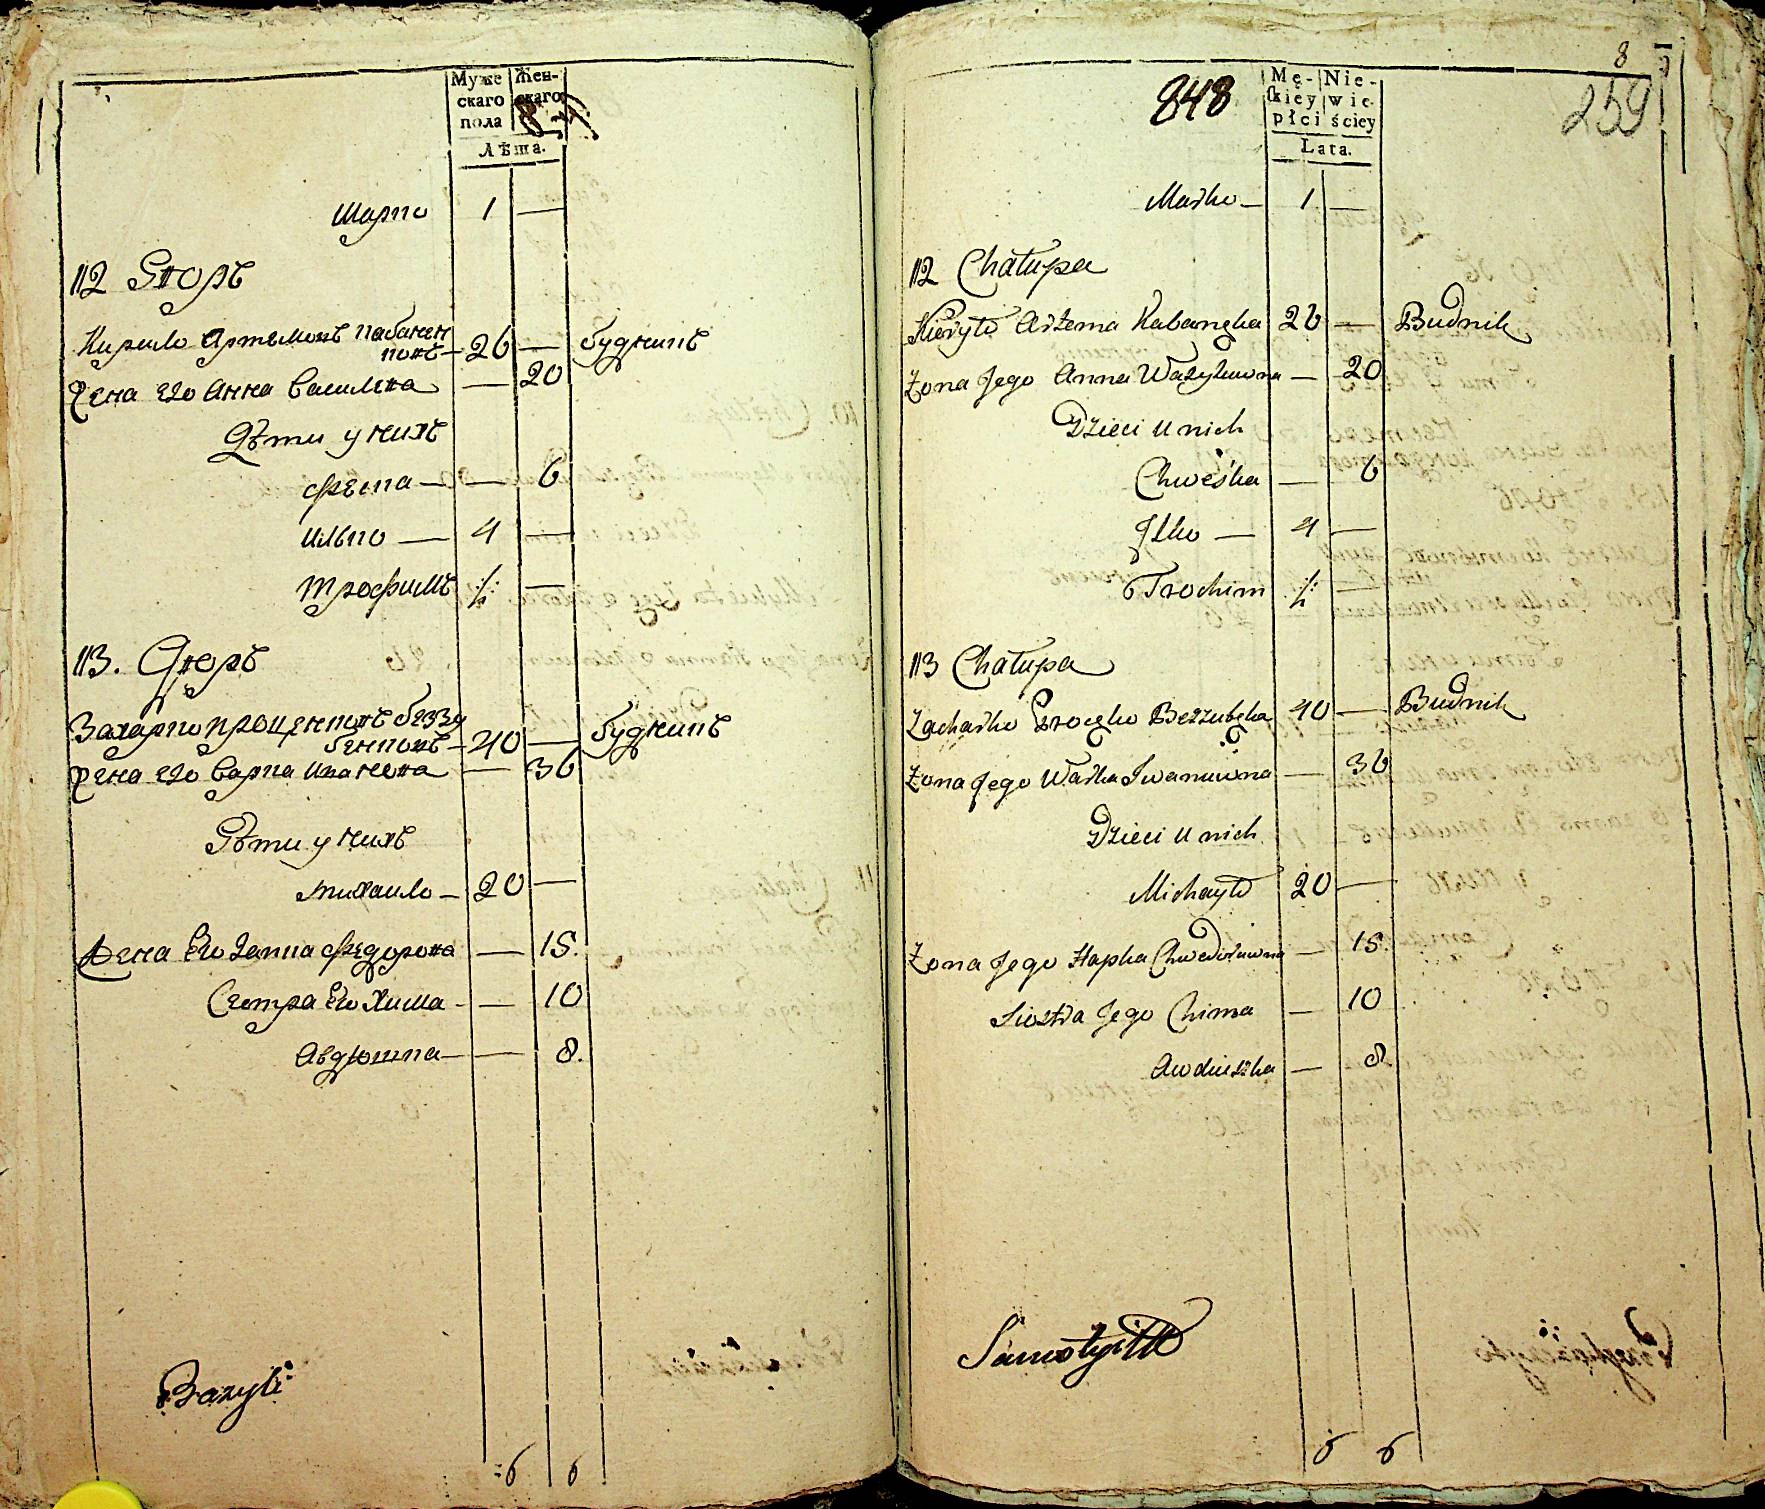 Муже Жен-
скаго скаго
пола
Лѣта.
Марко 1 —
112 Дворъ
Кирило Артемовъ Кабанен
ковъ — 26 — будникъ
Жена его Анна Василева — 20
Дѣти у нихъ
Феска — — 6
Илько — 4 —
Трофимъ ./. —
113. Дворъ
Захарко Проценковъ беззу
бенковъ — 40 — будникъ
Жена его Варка Иванова — 36
Дѣти у нихъ
Михайло — 20 —
Жена Его Гапка Федорова — 15.
Сестра Его Хима — — 10
Авдюшка — — 8.
Bazyli
6 6
8
848
259
Mę- Nie-
ſkiey wie-
płci ściey
Lata.
Marko — 1 —
112 Chałupa
Kieryło Artema Kabanęka 26 — Budnik
Żona Jego Anna Wasylewna — 20
Dzieci u nich
Chweśka — 6
Jlko — 4 —
Trochim ./. —
113 Chałupa
Zacharko Procęko Bezzubęka 40 — Budnik
Żona Jego Warka Jwanowna — 36
Dzieci u nich
Michayło 20 —
Żona Jego Hapka Chwedorowna — 15.
Siostra Jego Chima — 10
Awdiuszka — 8
Samotyiłł
6 6